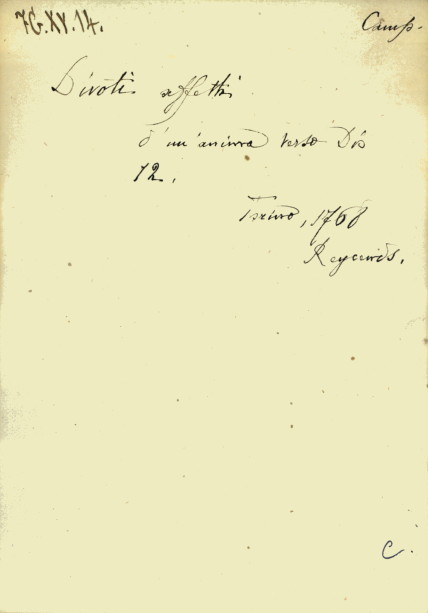 7G.XV.14.
Camp.
Divoti affetti
d'un'anima verso Dio
12.
Torino, 1768
C.